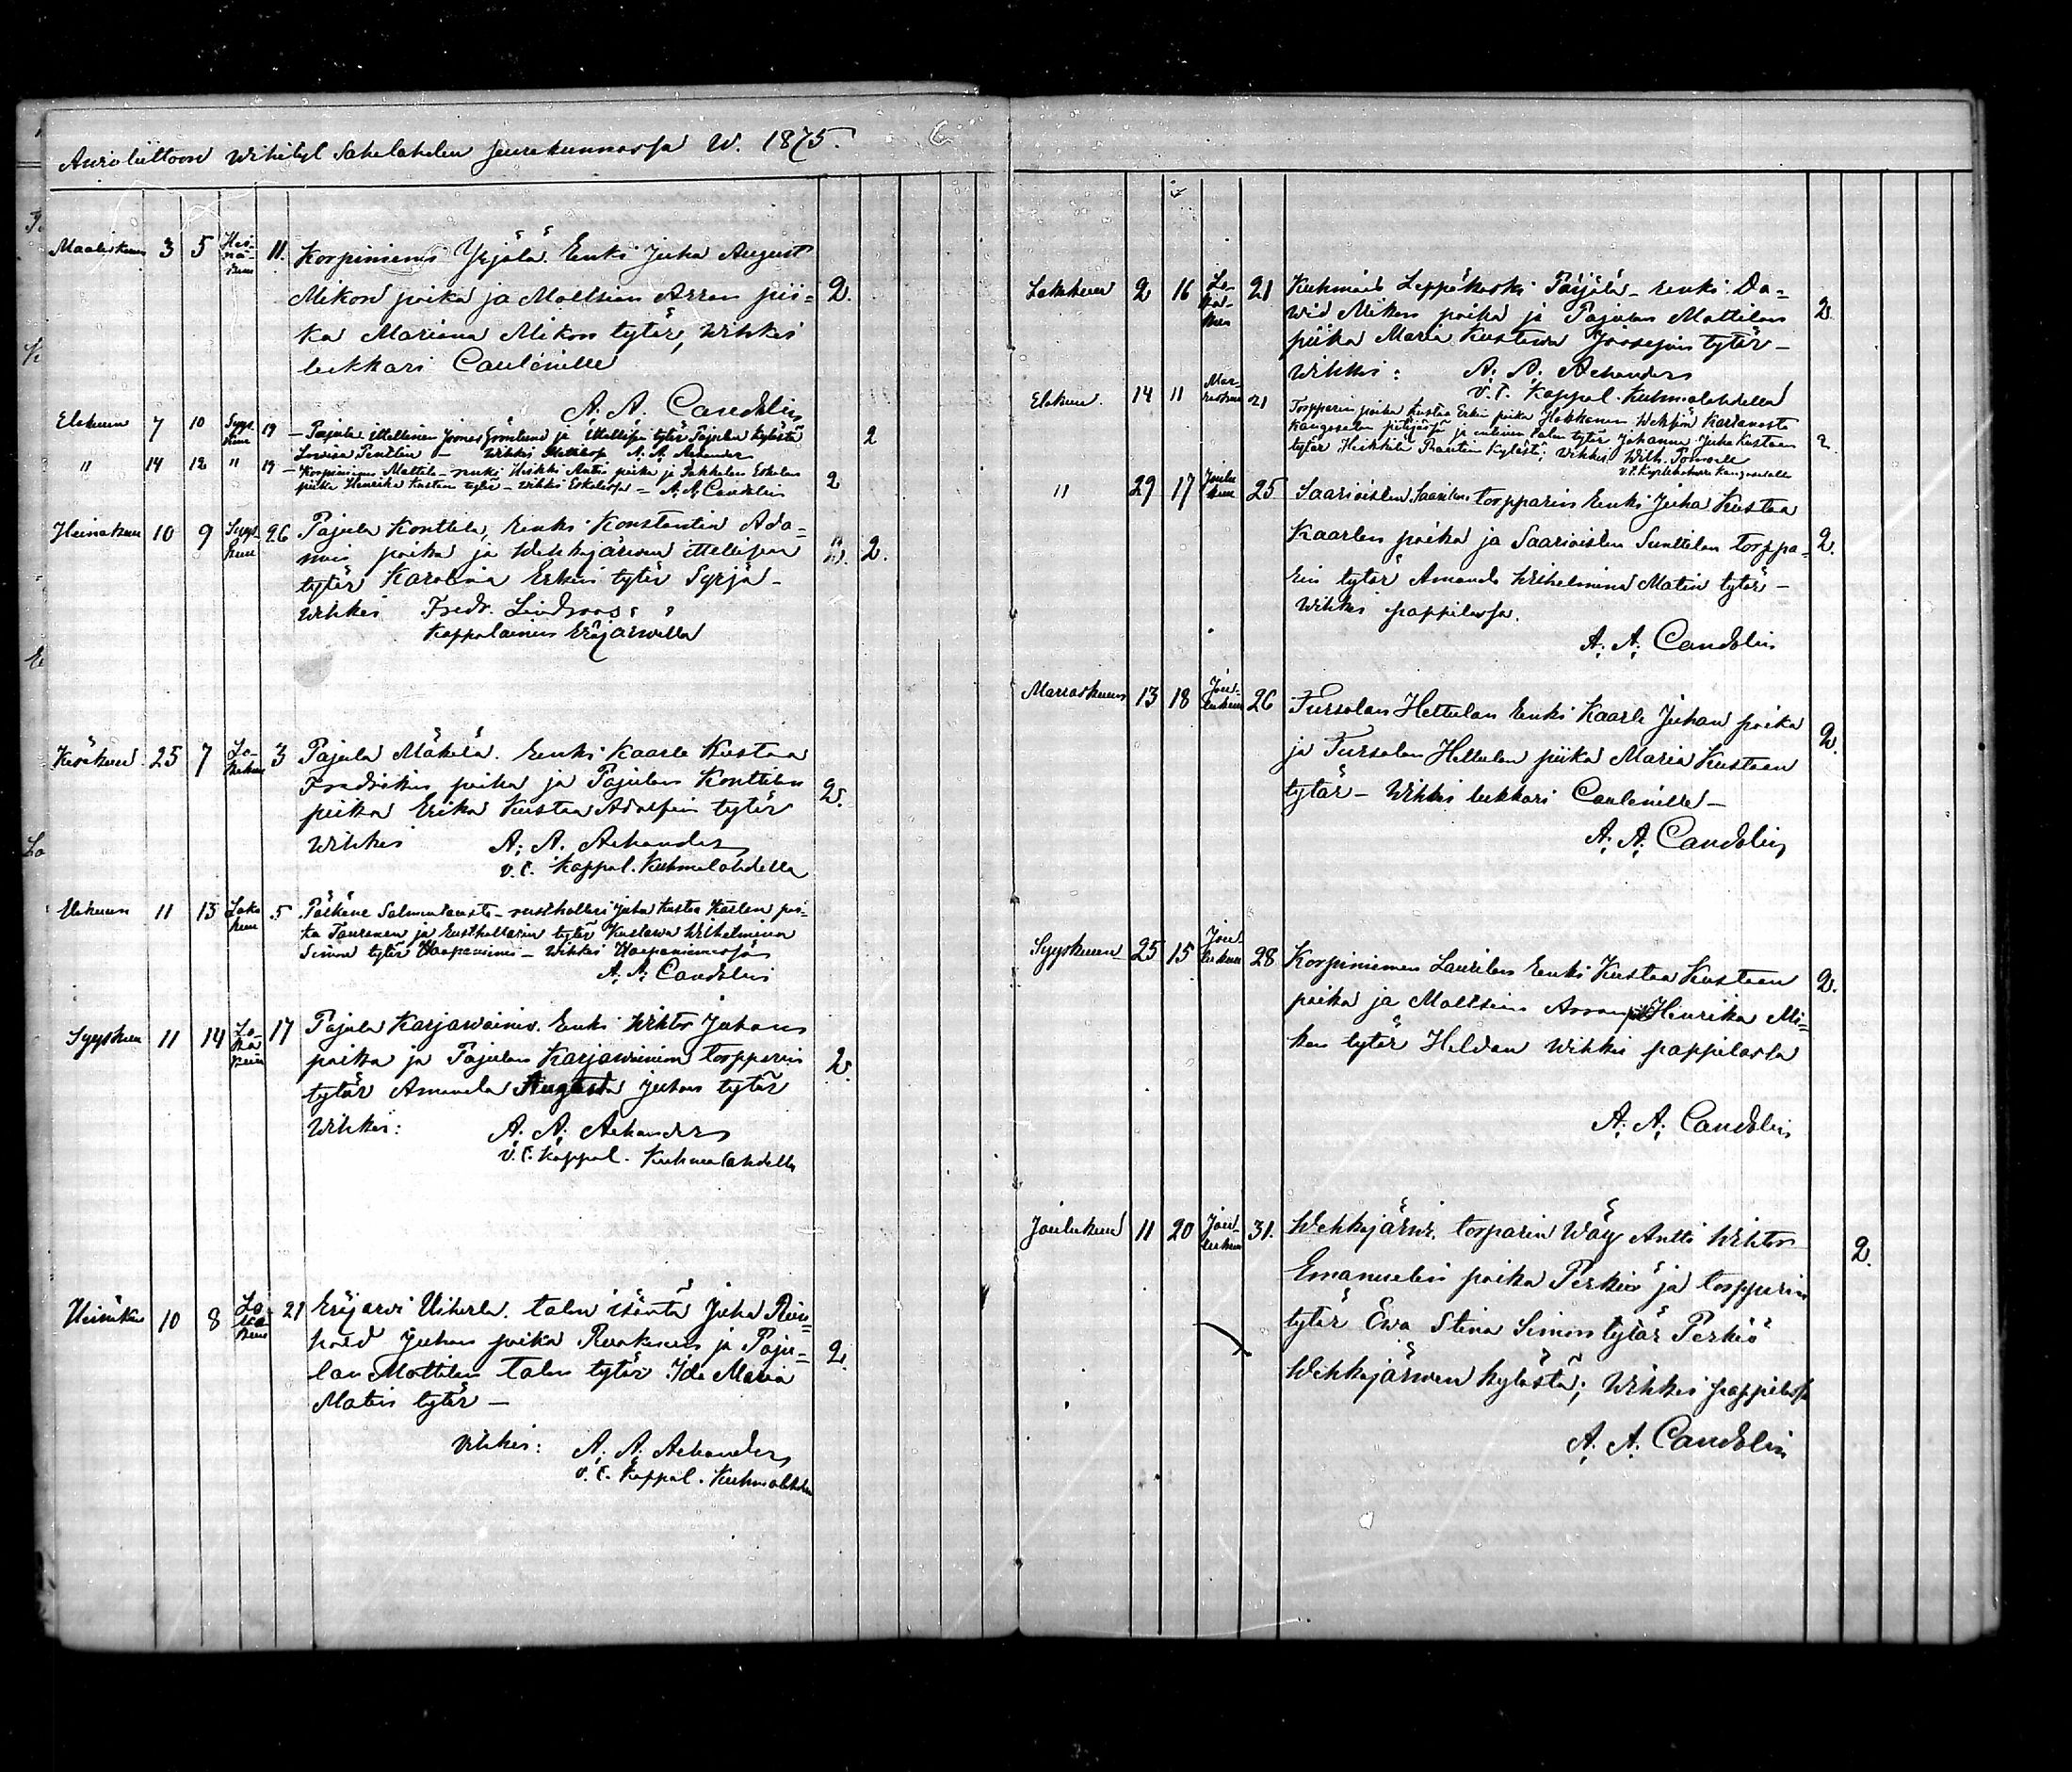 Awioliittoon wihityt Sahalahden seurakunnassa w. 1875.
Maaliskuun 3 5 Hei-
nä-
kuun 11. Korpiniemi Yrjölä. Renki Juha August
Mikon poika ja Moltsian Arran pii- 2.
ka Mariana Mikon tytär, Wihkei
lukkari
A. A. Candolin
Elokuun 7 10 Syys
kuun 19 – Pajula ittellinen Joonas Grönlund ja ittellisen tytär Pajulan kylästä 2
Lowisa – Wihki A. A. Achander
" 14 12 " 19 – Korpiniemi Mattila – renki Heikki Antin poika ja Pakkalan Eskolan
piika Henrika Kustaan tytär – Wihki Eskolassa – A. A. Candolin 2
Heinäkuun 10 9 Syys
kuun 26 Pajula Konttila, Renki Konstantin Ada-
min poika ja Wehkajärwen ittellisen 2.
tytär Karolina Erkin tytär Syrjä –
Wihkei Fredr. Lindroos
Kappalainen Eräjärwellä
Kesäkuun 25 7 Lo-
kakuun 3 Pajula Mäkelä. Renki Kaarle Kustaa
Fredrikin poika ja Pajulan Konttilan
piika Erika Kustaa Adolfin tytär 2.
Wihkei A. A. Achander
v.t. Kappal. Kuhmalahdella
Elokuun 11 13 Loka
kuun 5 Pälkäne Salmentausta – rusthollari Juha Kustaa Kaarlen poi-
ka Tauranen ja Rusthollarin tytär Kustawa Wilhelmina
Simon tytär Haapaniemi – Wihki Haapaniemessä
A. A. Candolin
Syyskuun 11 14 Lo-
ka
kuun 17 Pajula Karjawainio. Renki Wiktor Juhan
poika ja Pajulan Karjawainion torpparin 2.
tytär Amanda Augusta Juhan tytär
Wihkei: A. A. Achander
v.t. Kappal. Kuhmalahdella
Heinäkuun 10 8 Lo
ka
kuun 21 Eräjärvi Uiherla. talon isäntä Juha Rein-
hold Juhan poika Ruokinen ja Paju- 2.
lan Mattilan talon tytär Ida Maria
Matin tytär –
Wihkei: A. A. Achander
v.t. Kappal. Kuhmalahden
Lokakuun 2 16 Lo-
ka-
kuun 21 Kuhmalahti Leppäkoski Pärjälä – renki Da-
wid Mikon poika ja Pajulan Mattilan 2
piika Maria Kustawa Joosepin tytär –
Wihki: A. A. Achander
v.t. Kappal. Kuhmalahdella
Elokuun. 14 11 Mar-
raskuun 21 Torpparin poika Kustaa Erkin poika
Kangasalan pitäjässä ja entisen talon tytär Johanna Juha Kustaan 2.
tytär Heikkilä kylästä; Wihki Wilh.
Kangasalla
" 29 17 Joulu
kuun 25 Saarioisten torpparin Renki Juha Kustaa
Kaarlen poika ja Saarioisten Sunttilan torppa- 2.
rin tytär Amanda Wilhelmina Matin tytär –
Wihki pappilassa.
A. A. Candolin
Marraskuun 13 18 Jou-
lukuun 26 Tursolan Hettulan Renki Kaarle Juhan poika
ja Tursolan Hettulan piika Maria Kustaan 2.
tytär – Wihki lukkari
A. A. Candolin
Syyskuun 25 15 Jou-
lukuun 28 Korpiniemen Laurilan Renki Kustaa Kustaan 2.
poika ja Moltsian Arran Henrika Mi-
kon tytär Heldan Wihki pappilassa
A. A. Candolin
Joulukuun 11 20 Jou-
lukuun 31. Wehkajärwi. torparin Wäy Antti Wiktor 2.
Emanuelin poika Perkiö ja torpparin
tytär Ewa Stina Simon tytär Perkiö
Wehkajärwen kylästä; Wihkei pappilassa
A. A. Candolin